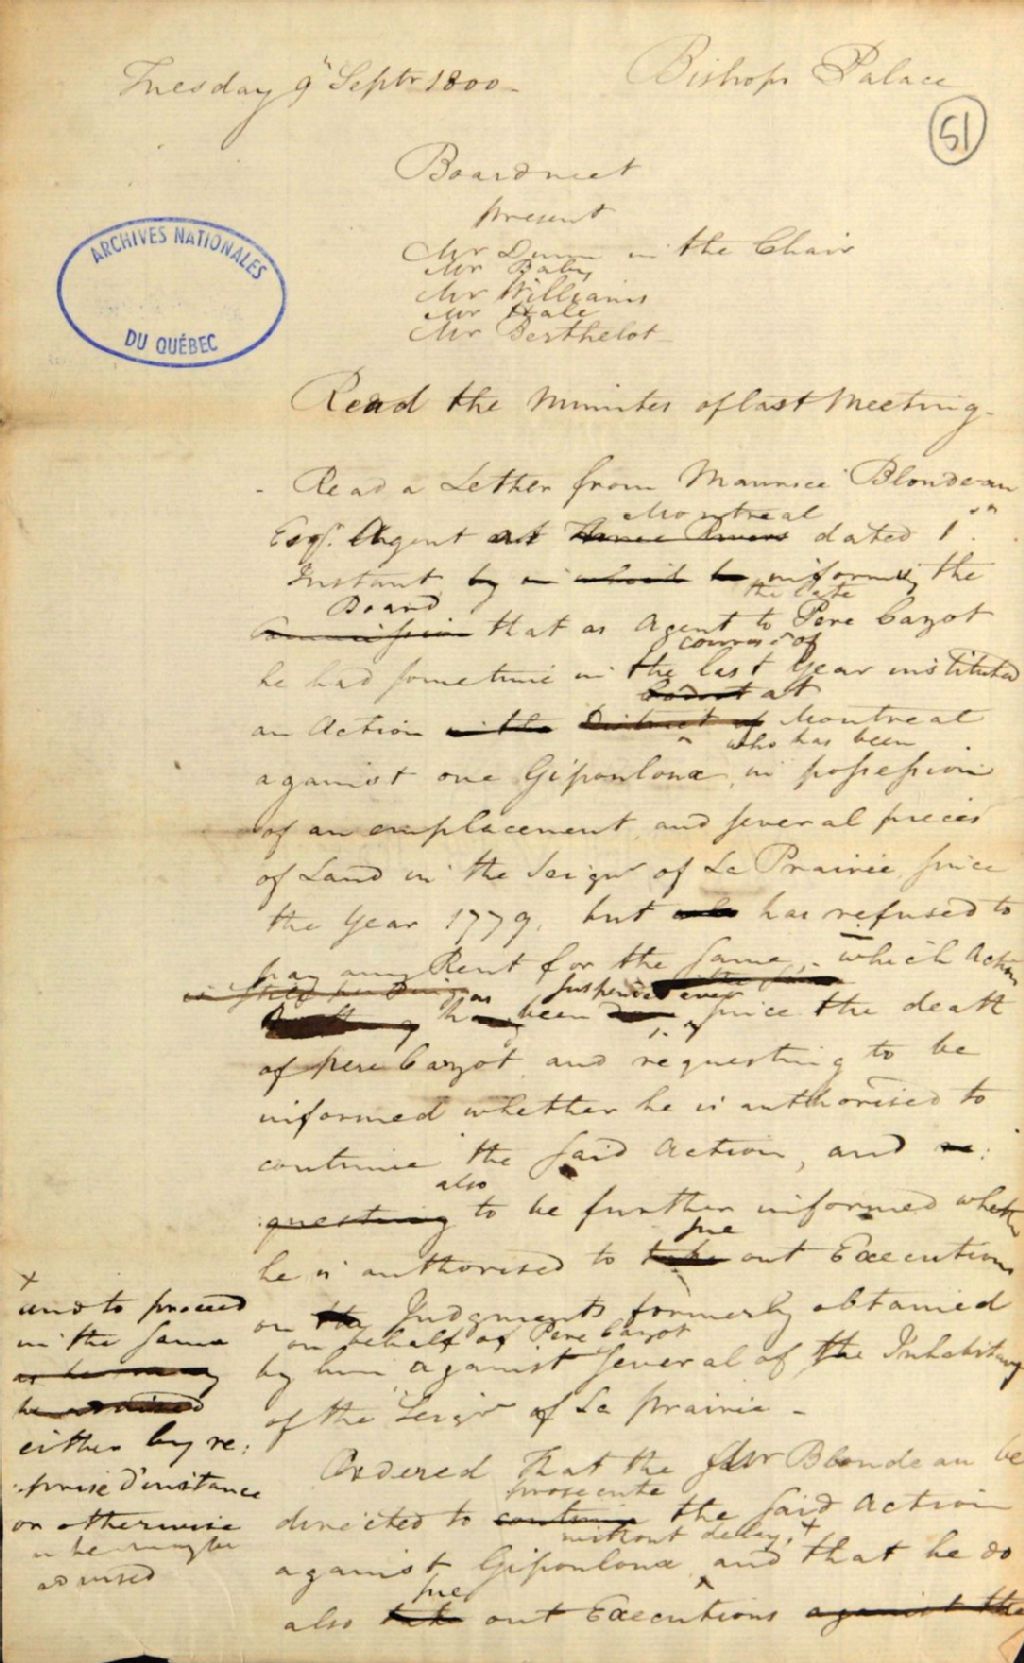 Tuesday 9th Septr 1800 -
Bishops Palace
51
Board met
present
Mr Dunn in the Chair
Mr Baby
Mr Williams
Mr Hale
Mr Berthelot
ARCHIVES NATIONALES
DU QUÉBEC
Read the Minutes of last Meeting -
- Read a Letter from Maurice Blondeau
Montreal
Esqr. Agent at Three Rivers dated 1st
Instant by in which he informing the
Board the late
Commission that as Agent to Pere Cazot
course of
he had sometime in the last Year instituted
at
an Action in the District of Montreal
who has been
against one Gipouloux in possession
of an emplacement and several pieces
of Land in the Seigry of La Prairie since
the Year 1779. but who has refused to
pay any Rent for the same, which Action
is still pending as suspended ever
has been since the death
of pere Cazot and requesting to be
informed whether he is authorised to
continue the said Action, and re:
also
:questing to be further informed whether
sue
he is authorised to take out Executions
on the Judgments formerly obtained
on behalf of Pere Cazot
by him against several of the Inhabitans
of the Seigry of La prairie -
Ordered That the Mr Blondeau be
prosecute
directed to continue the said Action
without delay, +
against Gipouloux and that he do
sue
also take out Executions against the
+
and to proceed
in the same
as he may
be advised
either by re:
:prise d'instance
or otherwise
as he may be
advised